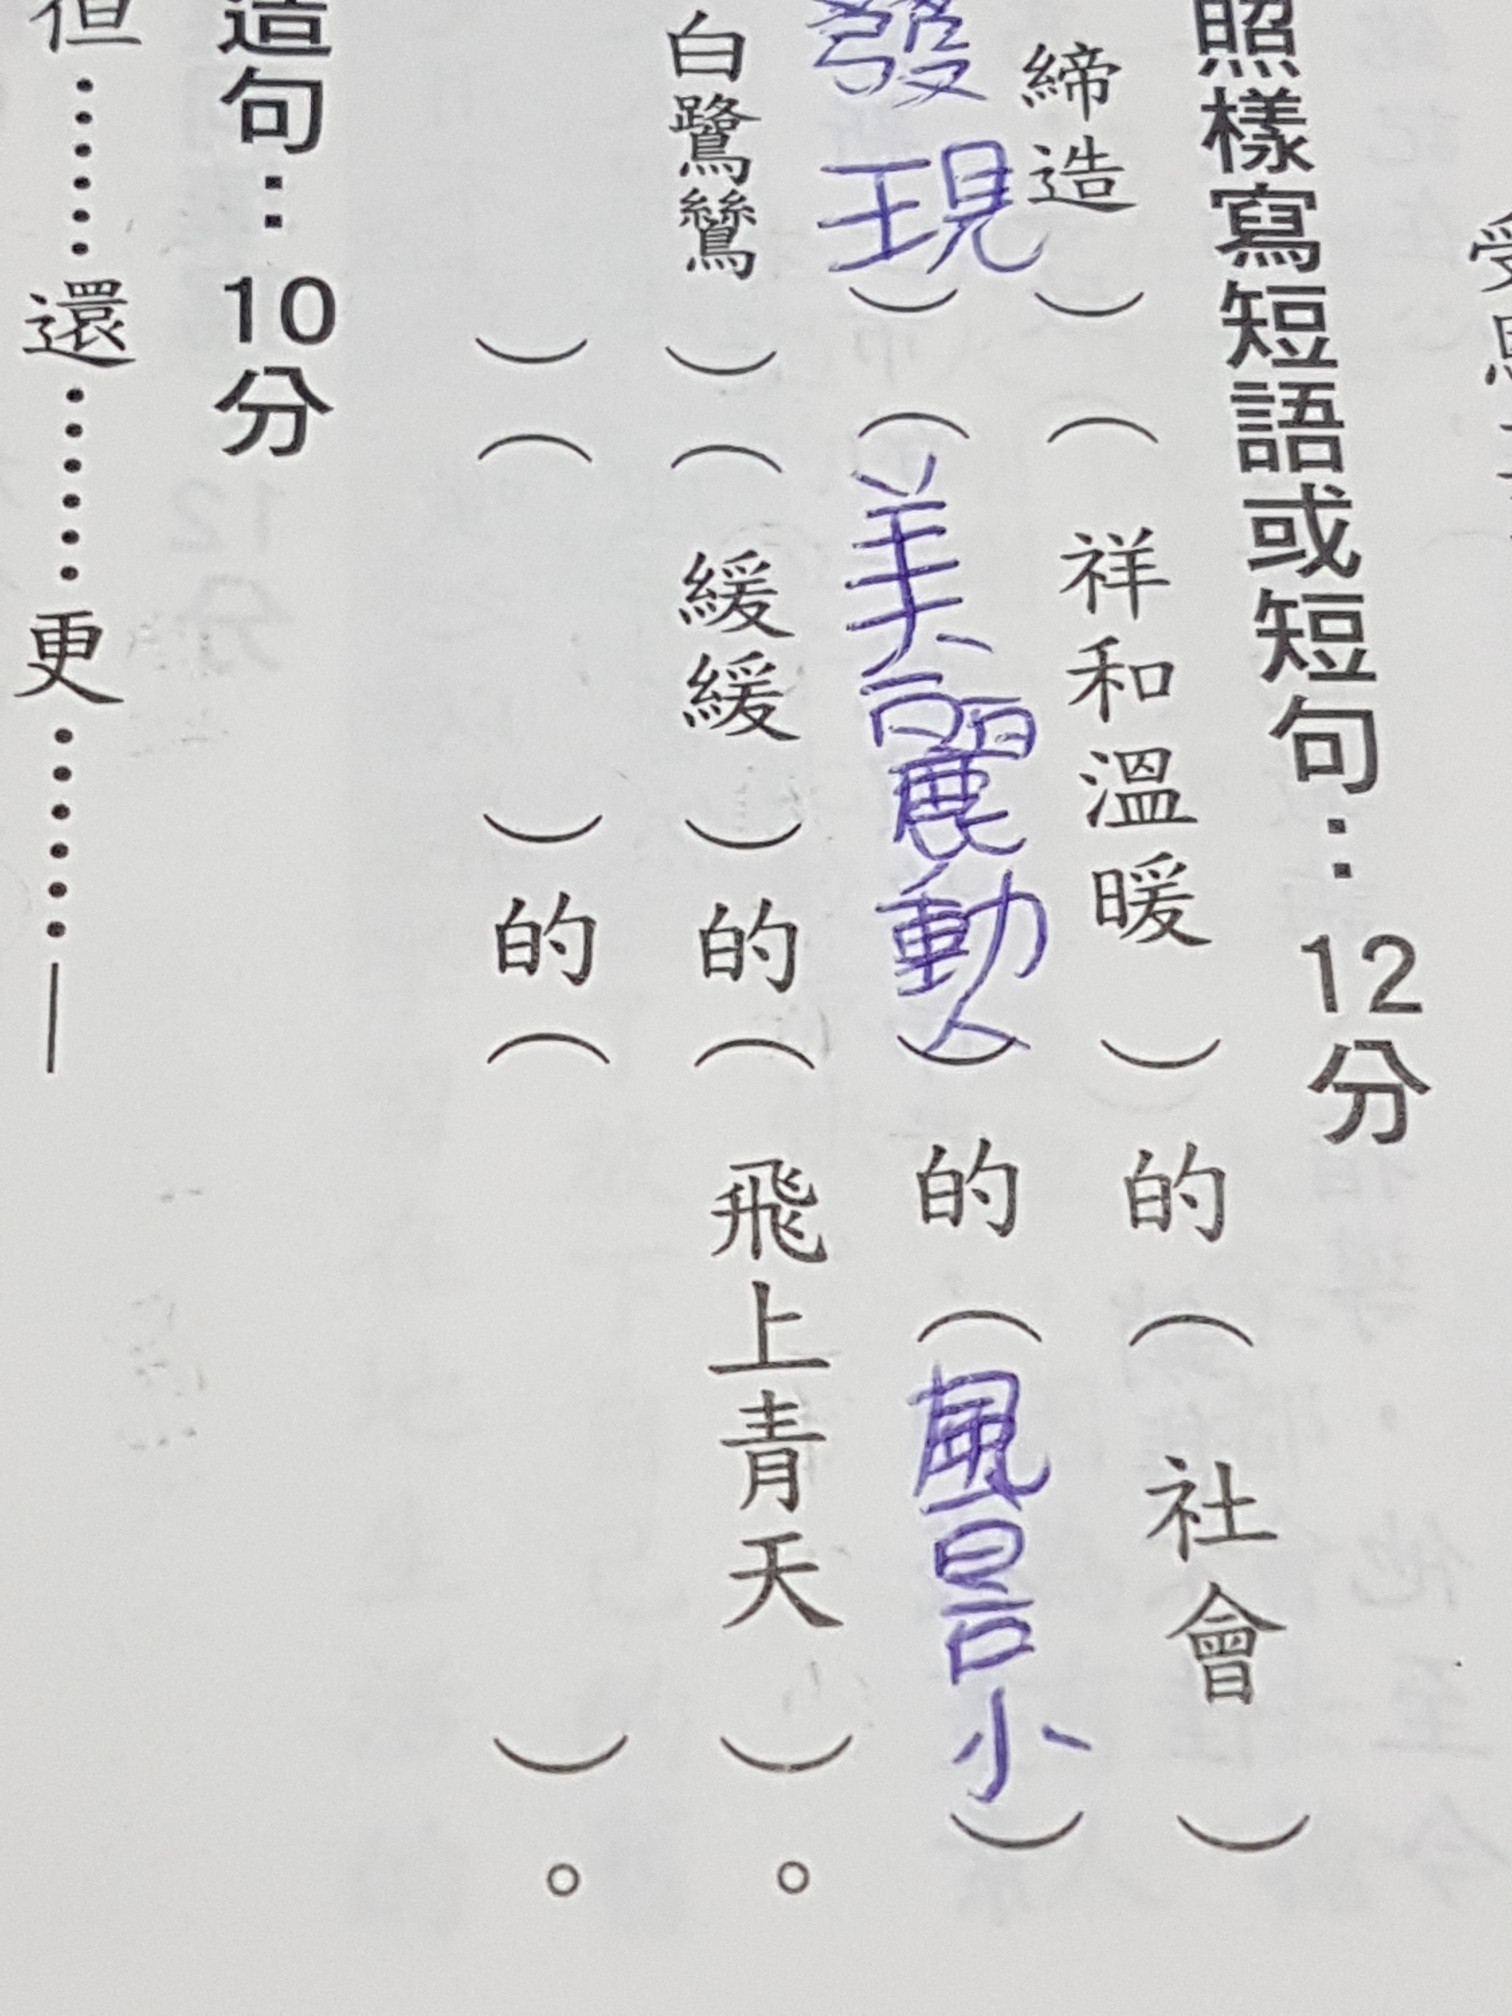 照樣寫短語或短句：12分
締造）（祥和溫暖）的（社會）
發現）（美麗動人）的（風景）
白鷺鷥）（緩緩）的（飛上青天）。
）（　）的（　）。
造句：10分
但……還……更……—